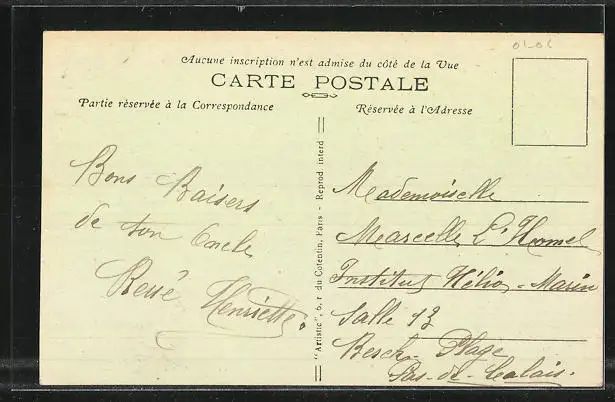 01-06
Aucune inscription n'est admise du côté de la Vue
CARTE POSTALE
Partie réservée à la Correspondance
Réservée à l'Adresse
Bons Baisers
de ton Oncle
René Henriette.
"Artistic", 6, r du Cotentin, Paris - Reprod. interd
Mademoiselle
Marcelle L'Homel
Institut Hélio-Marin
Salle 13
Berck-Plage
Pas-de-Calais.